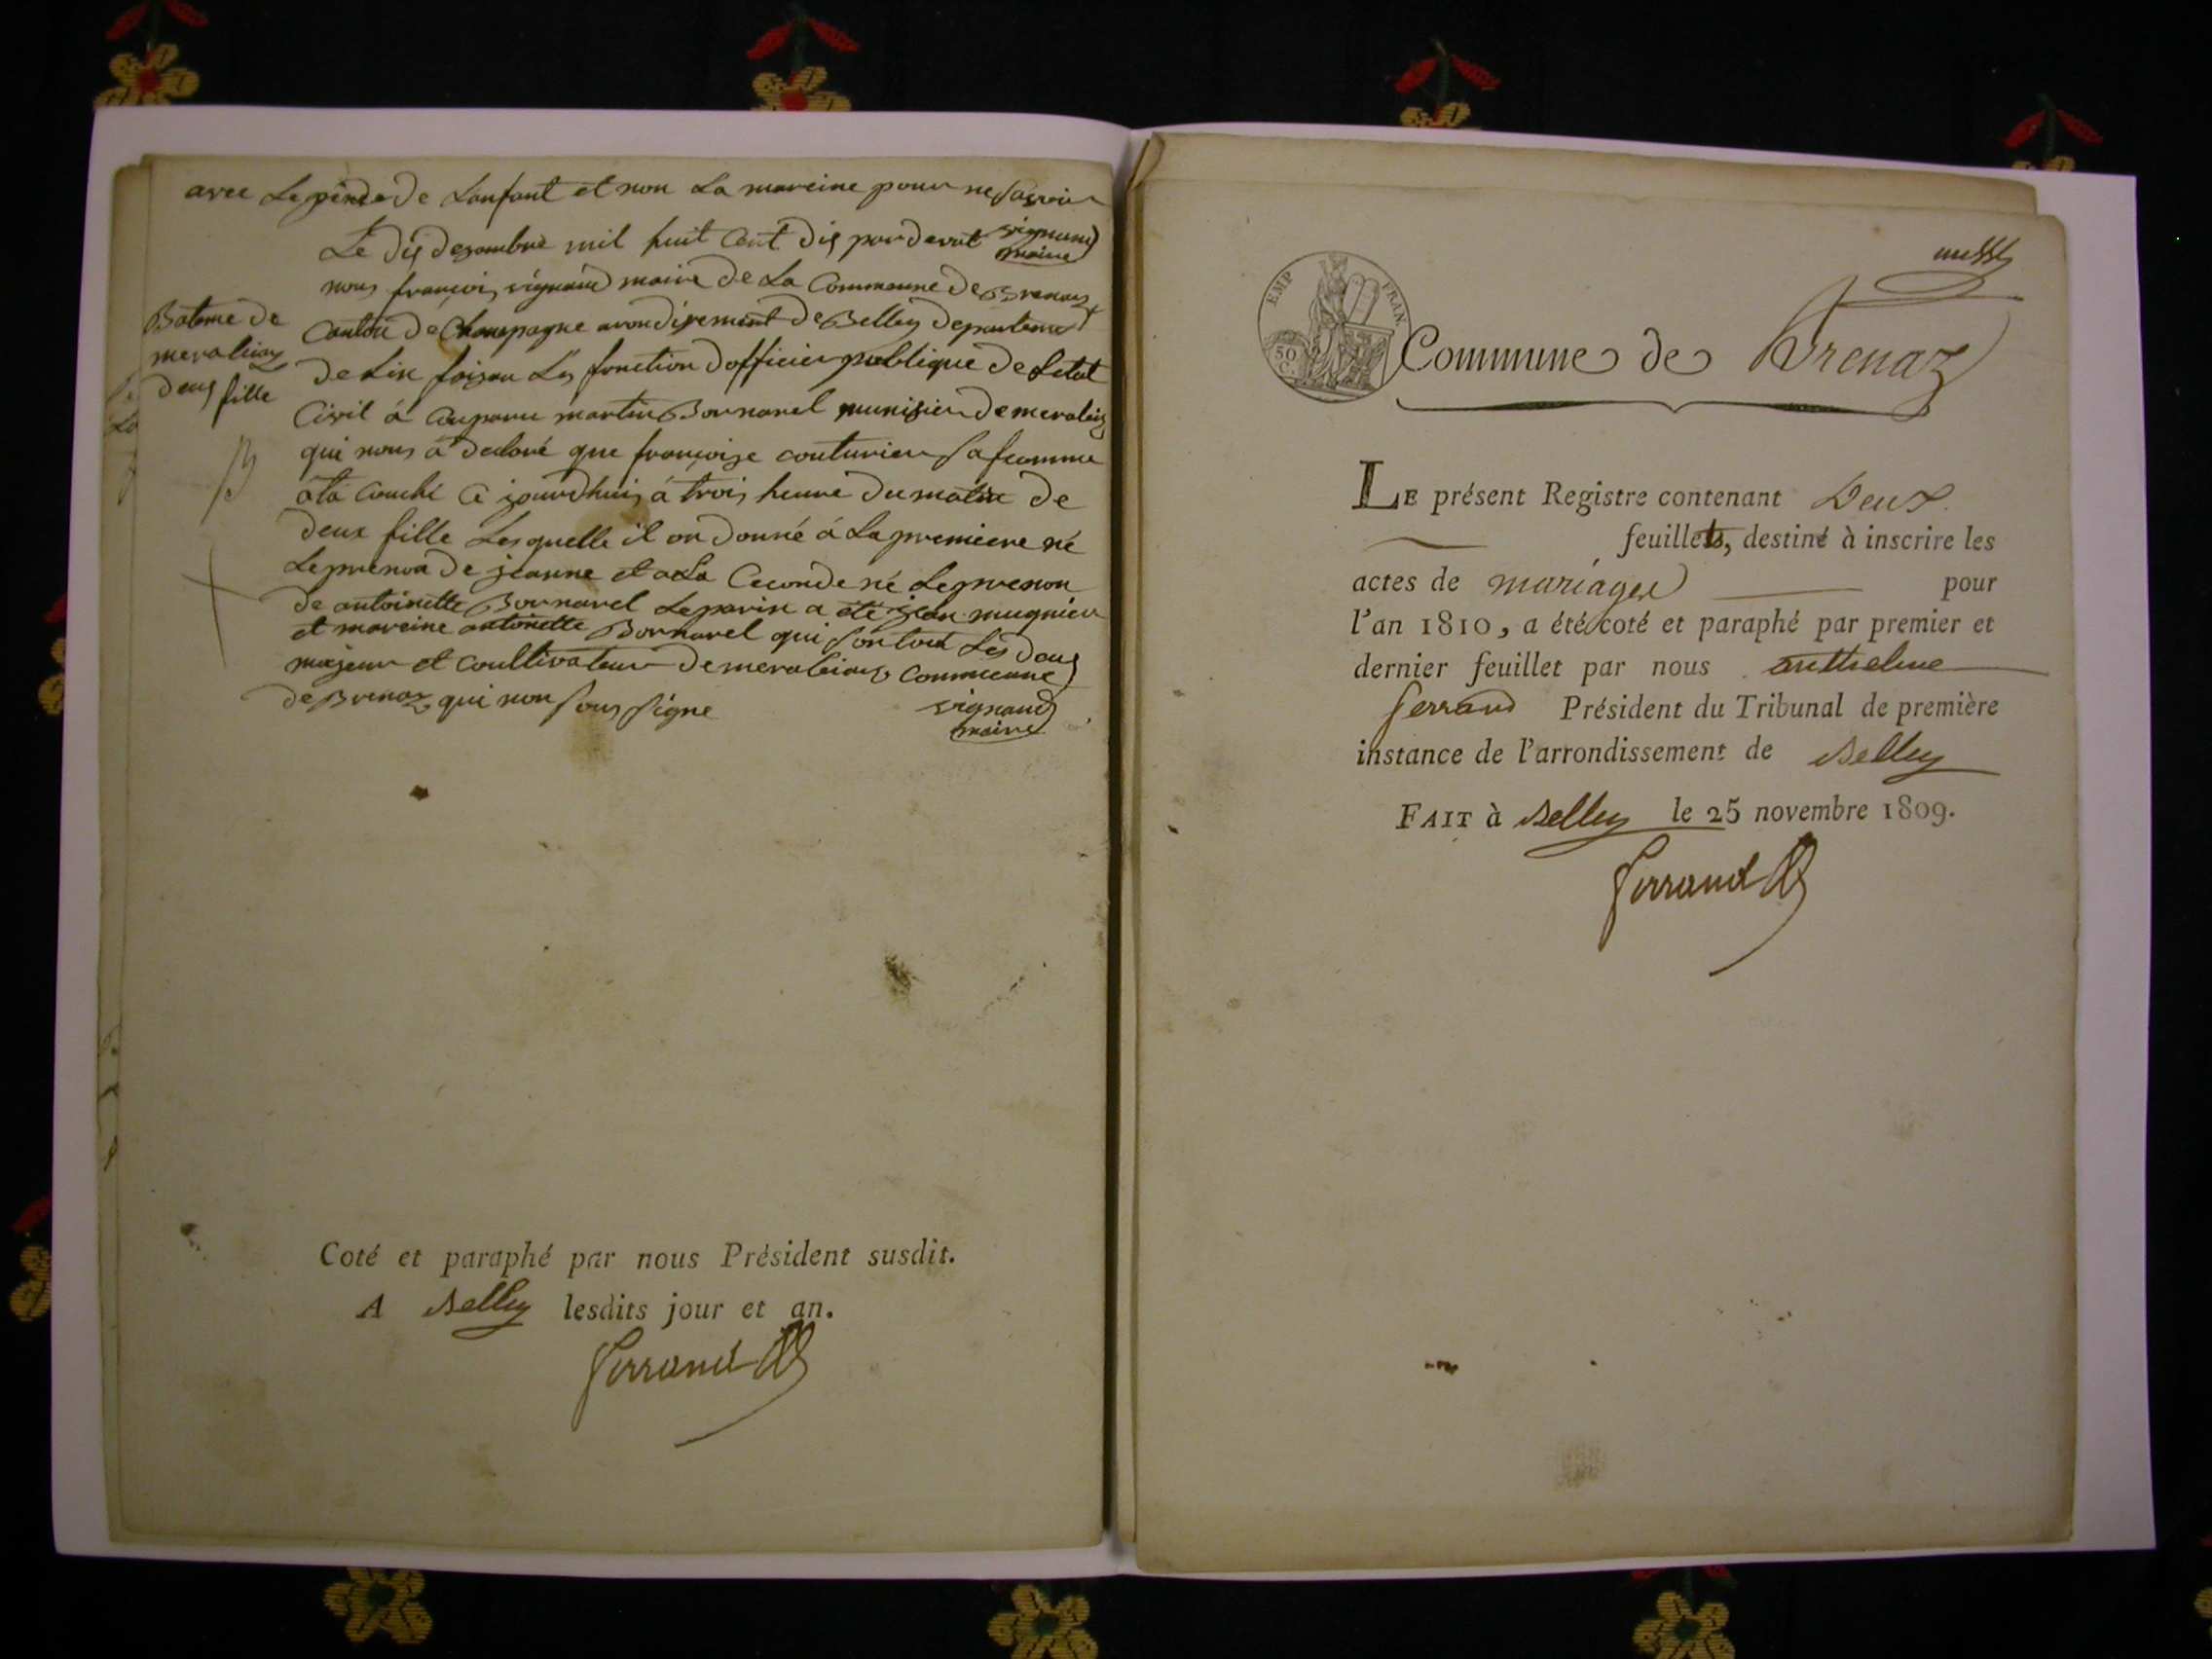 avec Le père de Lanfant et non La mareine pour ne savoir
vignaud
maire
Le dis desambre mil huit Cent dis pardevat
nous françois vignaud maire de La Commeune de Brenaz
Canton de Champagne arondisement de Belley departemet
de Lin faisan Les fonction dofficier publique de Letat
Civil á Conparu martin Bornarel munisier de meraleiaz
qui nous a declaré que françoise couturier sa feamme
áta Couché Ce jourdhuis á trois heure du matin de
deux fille Lesquelle il on donné á La premiere né
Le prenon de jeanne et a La Ceconde né Le prenon
de antoinette Bornarel Le parin a été jean mugnier
et mareine antoinette Bornarel qui son tout Les deus
majeur et Coultivateur de meraleiaz Commeune
de Brenaz qui non sous signe
vignaud
maire
Bateme de
meraleiaz
deus fille
Coté et paraphé par nous Président susdit.
A Belley lesdits jour et an.
Ferrand
EMP FRAN.
50 C.
Commune de Brenaz
LE présent Registre contenant Deux
feuillets, destiné à inscrire les
actes de mariages pour
l'an 1810, a été coté et paraphé par premier et
dernier feuillet par nous anthelme
ferrand Président du Tribunal de première
instance de l'arrondissement de Belley
FAIT à Belley le 25 novembre 1809.
Ferrand